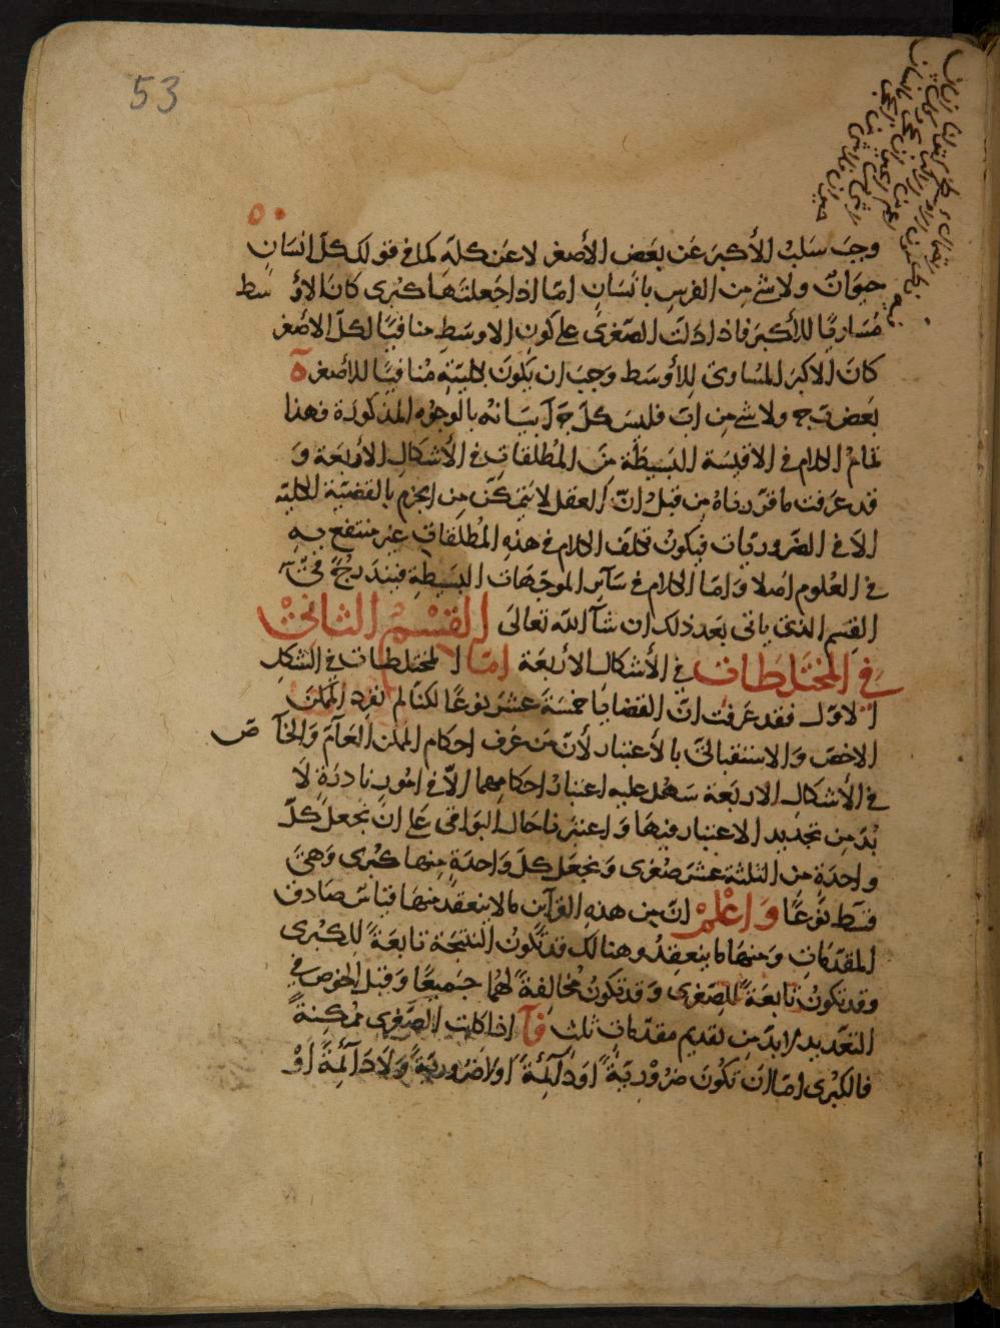 53
وجب سلب الأكبر عن بعض الأصغر لا عن كله كما في قولك كل انسان
حيوان ولا شي من الفرس بانسان اما اذا جعلتها كبرى كان الاوسط
مساويًا للأكبر فاذا دلت الصغرى على كون الاوسط منافيًا لكل الاصغر
كان الاكبر المساوي للأوسط وجب ان يكون كليته منافيًا للأصغر ة
بعض ب ج ولا شي من ا ب فليس كل ج ا بيانه بالوجوه المذكورة فهذا
تمام الكلام في الاقيسة البسيطة من المطلقات في الأشكال الأربعة و
قد عرفت ما قررناه من قبل ان العقل لا يتمكن من الجزم بالقضية الكلية
الا في الضروريات فيكون تكلف الكلام في هذه المطلقات غير منتفع به
في العلوم اصلا واما الكلام في سآير الموجهات البسيطة فيندرج في
القسم الذي ياتي بعد ذلك ان شآ الله تعالى القسم الثاني
في المختلطات في الأشكال الأربعة اما المختلطات في الشكل
الاول فقد عرفت ان القضايا خمسة عشر نوعًا لكنا لم نفرد الممكن
الاخص والاستقبالي بالأعتبار لأن من عرف احكام الممكن العآم والخآص
في الأشكال الاربعة سهل عليه اعتبار احكامهما الا في امور نادرة لا
بد من تجديد الاعتبار فيها واعتبرنا حال البواقي على ان نجعل كل
واحدة من الثلثة عشر صغرى ونجعل كل واحدة منها كبرى وهي
قسط نوعًا واعلم ان من هذه القرآين ما لا ينعقد منها قياس صادق
المقدمات ومنها ما ينعقد وهنالك قد تكون النتيجة تابعة للكبرى
وقد تكون تابعة للصغرى وقد تكون مخالفة لهما جميعًا وقبل الخوض في
التعديد لا بد من تقديم مقدمات ثلث آ اذا كانت الصغرى ممكنة
فالكبرى اما ان تكون ضرورية او دآئمة او لا ضرورية ولا دآئمة او